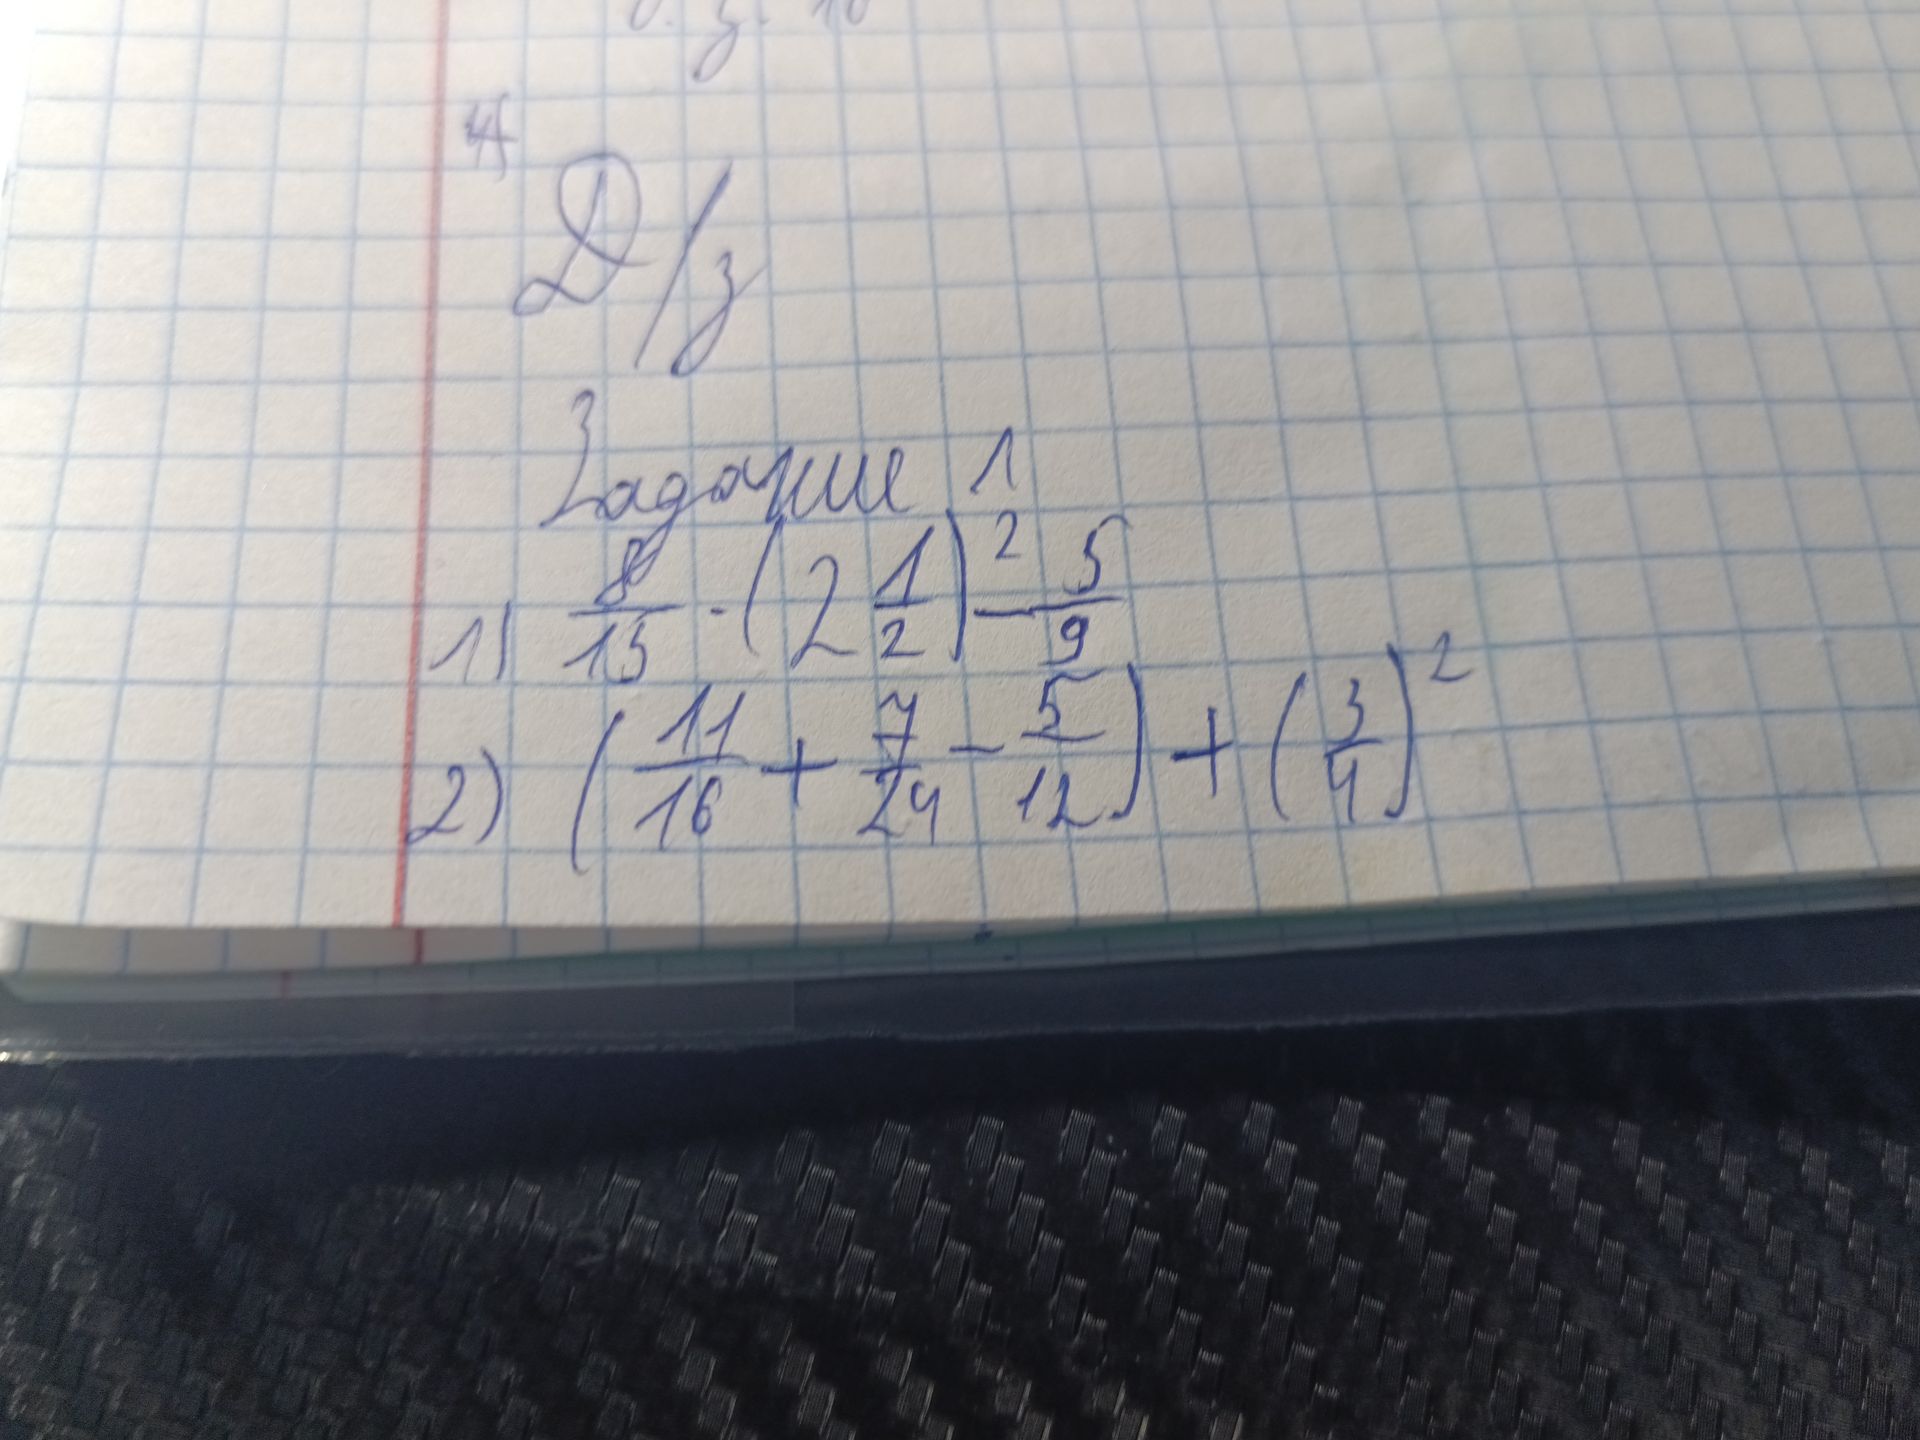 Д/з
Задание 1
1) 8/15 · (2 1/2)² - 5/9
2) (11/16 + 7/24 - 5/12) + (3/4)²